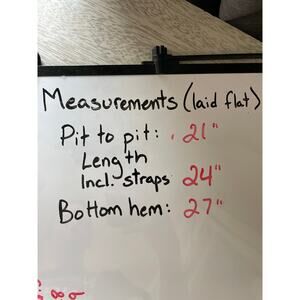 Measurements (laid flat)
Pit to pit: 21"
Length
Incl. straps 24"
Bottom hem: 27"